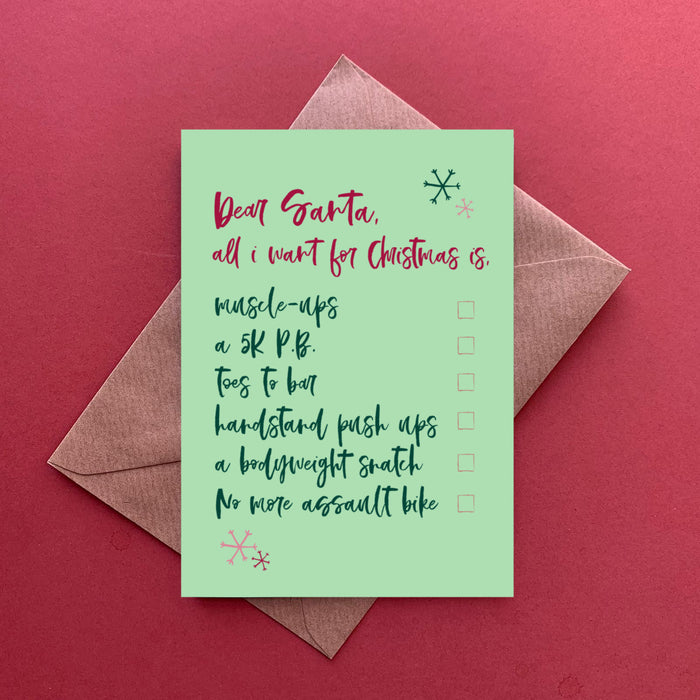 Dear Santa,
all i want for Christmas is,
muscle-ups
a 5K P.B.
toes to bar
handstand push ups
a bodyweight snatch
No more assault bike